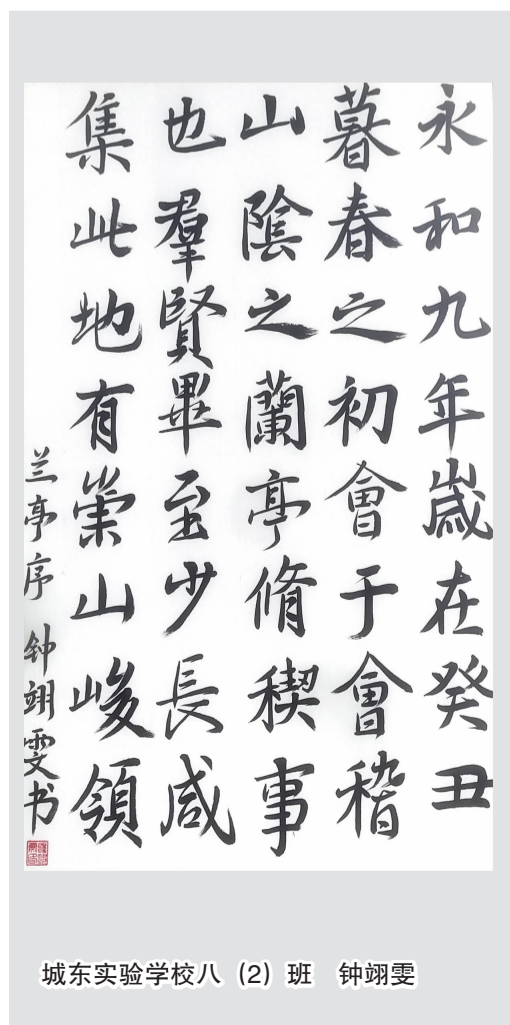 永和九年歲在癸丑
暮春之初會于會稽
山陰之蘭亭脩稧事
也羣賢畢至少長咸
集此地有崇山峻領
兰亭序 钟翊雯书
城东实验学校八（2）班 钟翊雯